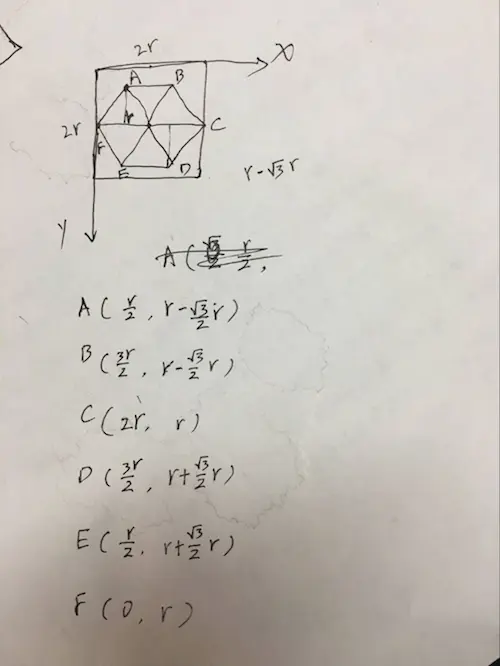 2r
X
A B
2r r C
F
E D
r-√3 r
Y
A( r/2,
A( r/2, r-√3/2 r)
B( 3r/2, r-√3/2 r)
C(2r, r)
D( 3r/2, r+√3/2 r)
E( r/2, r+√3/2 r)
F(0, r)